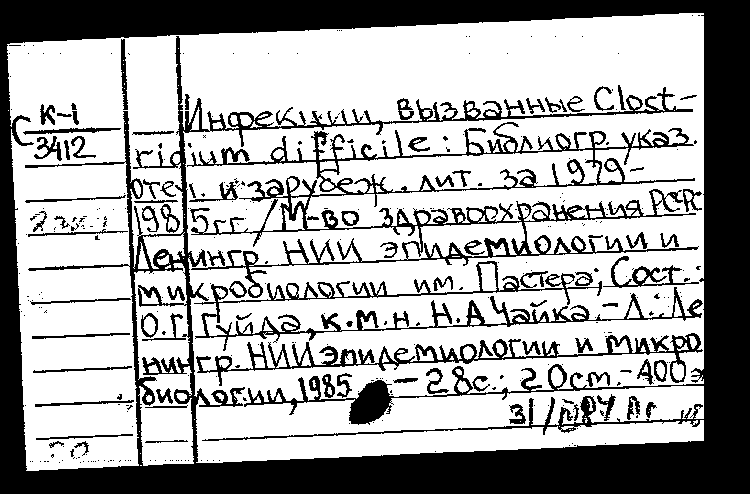 К-1
С 3412
Инфекции, вызванные Clost-
ridium difficile : Библиогр. указ.
отеч. и зарубеж. лит. за 1979-
1985 гг. / М-во здравоохранения РСФСР
Ленингр. НИИ эпидемиологии и
микробиологии им. Пастера; Сост.:
О.Г. Гуйда, к.м.н. Н.А Чайка. - Л.: Ле
нингр. НИИ эпидемиологии и микро
биологии, 1985 - 28с.; 20см. - 400э
31/